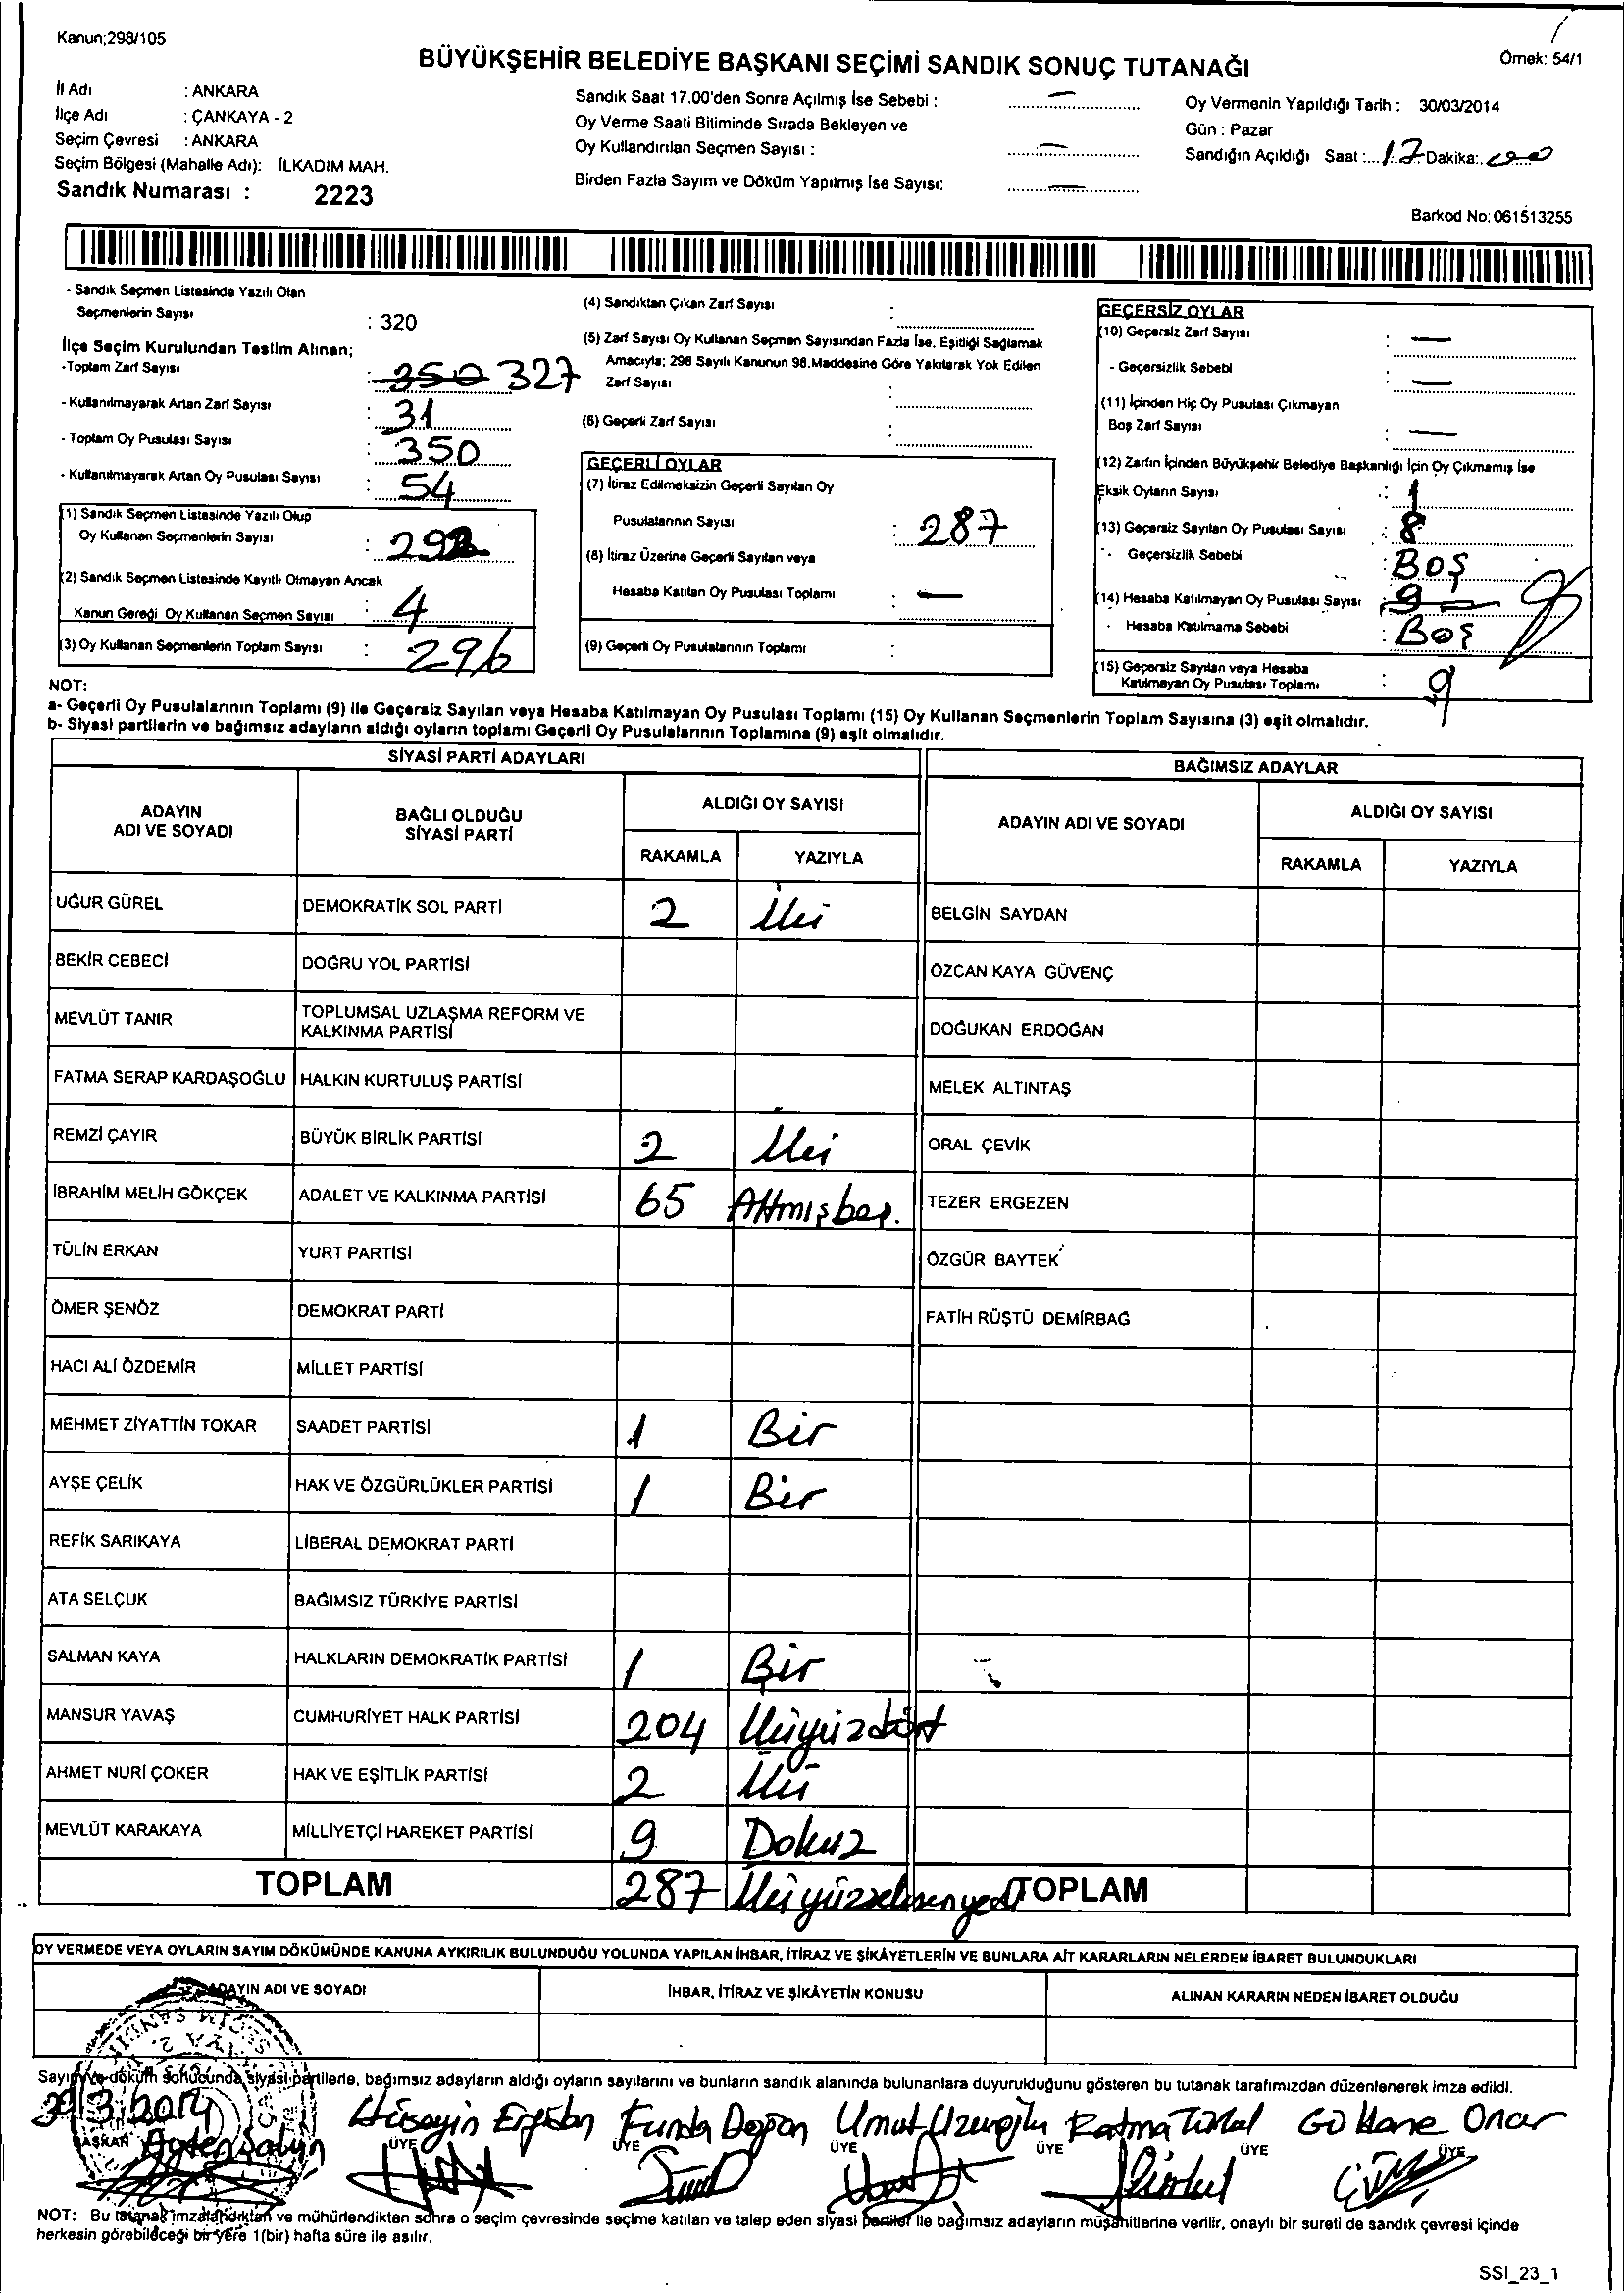 Kanun;298/105
Örnek: 54/1
BÜYÜKŞEHİR BELEDİYE BAŞKANI SEÇİMİ SANDIK SONUÇ TUTANAĞI
İl Adı : ANKARA
İlçe Adı : ÇANKAYA - 2
Seçim Çevresi : ANKARA
Seçim Bölgesi (Mahalle Adı): İLKADIM MAH.
Sandık Numarası : 2223
Sandık Saat 17.00'den Sonra Açılmış İse Sebebi : —
Oy Verme Saati Bitiminde Sırada Bekleyen ve
Oy Kullandırılan Seçmen Sayısı : —
Birden Fazla Sayım ve Döküm Yapılmış İse Sayısı: —
Oy Vermenin Yapıldığı Tarih : 30/03/2014
Gün : Pazar
Sandığın Açıldığı Saat : 17 Dakika: 00
Barkod No: 061513255
- Sandık Seçmen Listesinde Yazılı Olan
Seçmenlerin Sayısı : 320
İlçe Seçim Kurulundan Teslim Alınan;
-Toplam Zarf Sayısı : 350 327
- Kullanılmayarak Artan Zarf Sayısı : 31
- Toplam Oy Pusulası Sayısı : 350
- Kullanılmayarak Artan Oy Pusulası Sayısı : 54
(1) Sandık Seçmen Listesinde Yazılı Olup
Oy Kullanan Seçmenlerin Sayısı : 292
(2) Sandık Seçmen Listesinde Kayıtlı Olmayan Ancak
Kanun Gereği Oy Kullanan Seçmen Sayısı : 4
(3) Oy Kullanan Seçmenlerin Toplam Sayısı : 296
(4) Sandıktan Çıkan Zarf Sayısı :
(5) Zarf Sayısı Oy Kullanan Seçmen Sayısından Fazla İse, Eşitliği Sağlamak
Amacıyla; 298 Sayılı Kanunun 98.Maddesine Göre Yakılarak Yok Edilen
Zarf Sayısı :
(6) Geçerli Zarf Sayısı :
GEÇERLİ OYLAR
(7) İtiraz Edilmeksizin Geçerli Sayılan Oy
Pusulalarının Sayısı : 287
(8) İtiraz Üzerine Geçerli Sayılan veya
Hesaba Katılan Oy Pusulası Toplamı : —
(9) Geçerli Oy Pusulalarının Toplamı :
GEÇERSİZ OYLAR
(10) Geçersiz Zarf Sayısı : —
- Geçersizlik Sebebi : —
(11) İçinden Hiç Oy Pusulası Çıkmayan
Boş Zarf Sayısı : —
(12) Zarfın İçinden Büyükşehir Belediye Başkanlığı İçin Oy Çıkmamış İse
Eksik Oyların Sayısı : 1
(13) Geçersiz Sayılan Oy Pusulası Sayısı : 8
- Geçersizlik Sebebi : BOŞ
(14) Hesaba Katılmayan Oy Pusulası Sayısı : 9
- Hesaba Katılmama Sebebi : BOŞ
(15) Geçersiz Sayılan veya Hesaba
Katılmayan Oy Pusulası Toplamı : 9
NOT:
a- Geçerli Oy Pusulalarının Toplamı (9) ile Geçersiz Sayılan veya Hesaba Katılmayan Oy Pusulası Toplamı (15) Oy Kullanan Seçmenlerin Toplam Sayısına (3) eşit olmalıdır.
b- Siyasi partilerin ve bağımsız adayların aldığı oyların toplamı Geçerli Oy Pusulalarının Toplamına (9) eşit olmalıdır.
SİYASİ PARTİ ADAYLARI BAĞIMSIZ ADAYLAR
ADAYIN ADI VE SOYADI BAĞLI OLDUĞU SİYASİ PARTİ ALDIĞI OY SAYISI ADAYIN ADI VE SOYADI ALDIĞI OY SAYISI
RAKAMLA YAZIYLA RAKAMLA YAZIYLA
UĞUR GÜREL DEMOKRATİK SOL PARTİ 2 İki BELGİN SAYDAN
BEKİR CEBECİ DOĞRU YOL PARTİSİ ÖZCAN KAYA GÜVENÇ
MEVLÜT TANIR TOPLUMSAL UZLAŞMA REFORM VE KALKINMA PARTİSİ DOĞUKAN ERDOĞAN
FATMA SERAP KARDAŞOĞLU HALKIN KURTULUŞ PARTİSİ MELEK ALTINTAŞ
REMZİ ÇAYIR BÜYÜK BİRLİK PARTİSİ 2 İki ORAL ÇEVİK
İBRAHİM MELİH GÖKÇEK ADALET VE KALKINMA PARTİSİ 65 Altmışbeş. TEZER ERGEZEN
TÜLİN ERKAN YURT PARTİSİ ÖZGÜR BAYTEK
ÖMER ŞENÖZ DEMOKRAT PARTİ FATİH RÜŞTÜ DEMİRBAĞ
HACI ALİ ÖZDEMİR MİLLET PARTİSİ
MEHMET ZİYATTİN TOKAR SAADET PARTİSİ 1 Bir
AYŞE ÇELİK HAK VE ÖZGÜRLÜKLER PARTİSİ 1 Bir
REFİK SARIKAYA LİBERAL DEMOKRAT PARTİ
ATA SELÇUK BAĞIMSIZ TÜRKİYE PARTİSİ
SALMAN KAYA HALKLARIN DEMOKRATİK PARTİSİ 1 Bir
MANSUR YAVAŞ CUMHURİYET HALK PARTİSİ 204 İkiyüzdört
AHMET NURİ ÇOKER HAK VE EŞİTLİK PARTİSİ 2 İki
MEVLÜT KARAKAYA MİLLİYETÇİ HAREKET PARTİSİ 9 Dokuz
TOPLAM 287 İkiyüzseksenyedi TOPLAM
OY VERMEDE VEYA OYLARIN SAYIM DÖKÜMÜNDE KANUNA AYKIRILIK BULUNDUĞU YOLUNDA YAPILAN İHBAR, İTİRAZ VE ŞİKÂYETLERİN VE BUNLARA AİT KARARLARIN NELERDEN İBARET BULUNDUKLARI
ADAYIN ADI VE SOYADI İHBAR, İTİRAZ VE ŞİKÂYETİN KONUSU ALINAN KARARIN NEDEN İBARET OLDUĞU
Sayım ve döküm sonucunda, siyasi partilerle, bağımsız adayların aldığı oyların sayılarını ve bunların sandık alanında bulunanlara duyurulduğunu gösteren bu tutanak tarafımızdan düzenlenerek imza edildi.
30/3/2014
Hüseyin Funda Doğan Umut Uzunoğlu Fatma Gökhane Onar
BAŞKAN ÜYE ÜYE ÜYE ÜYE ÜYE ÜYE
NOT: Bu tutanak imzalandıktan ve mühürlendikten sonra o seçim çevresinde seçime katılan ve talep eden siyasi partiler ile bağımsız adayların müşahitlerine verilir, onaylı bir sureti de sandık çevresi içinde
herkesin görebileceği bir yere 1(bir) hafta süre ile asılır.
SSI_23_1